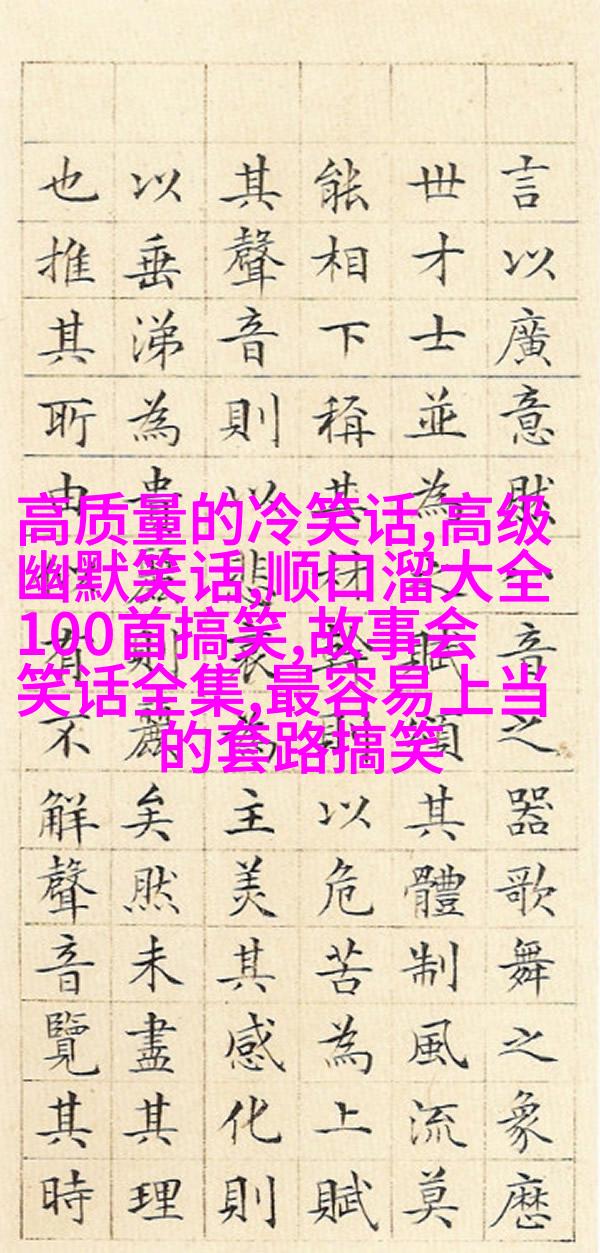 言以廣意然音之器歌舞之象歷
世才士並為之賦頌其體制風流莫
能相下稱其材幹則以危苦為上賦
其聲音則以悲哀為主美其感化則
以垂涕為貴麗則麗矣然未盡其理
也推其所由有不解聲音覽其時
高质量的冷笑话,高级
幽默笑话,顺口溜大全
100首搞笑,故事会
笑话全集,最容易上当
的套路搞笑